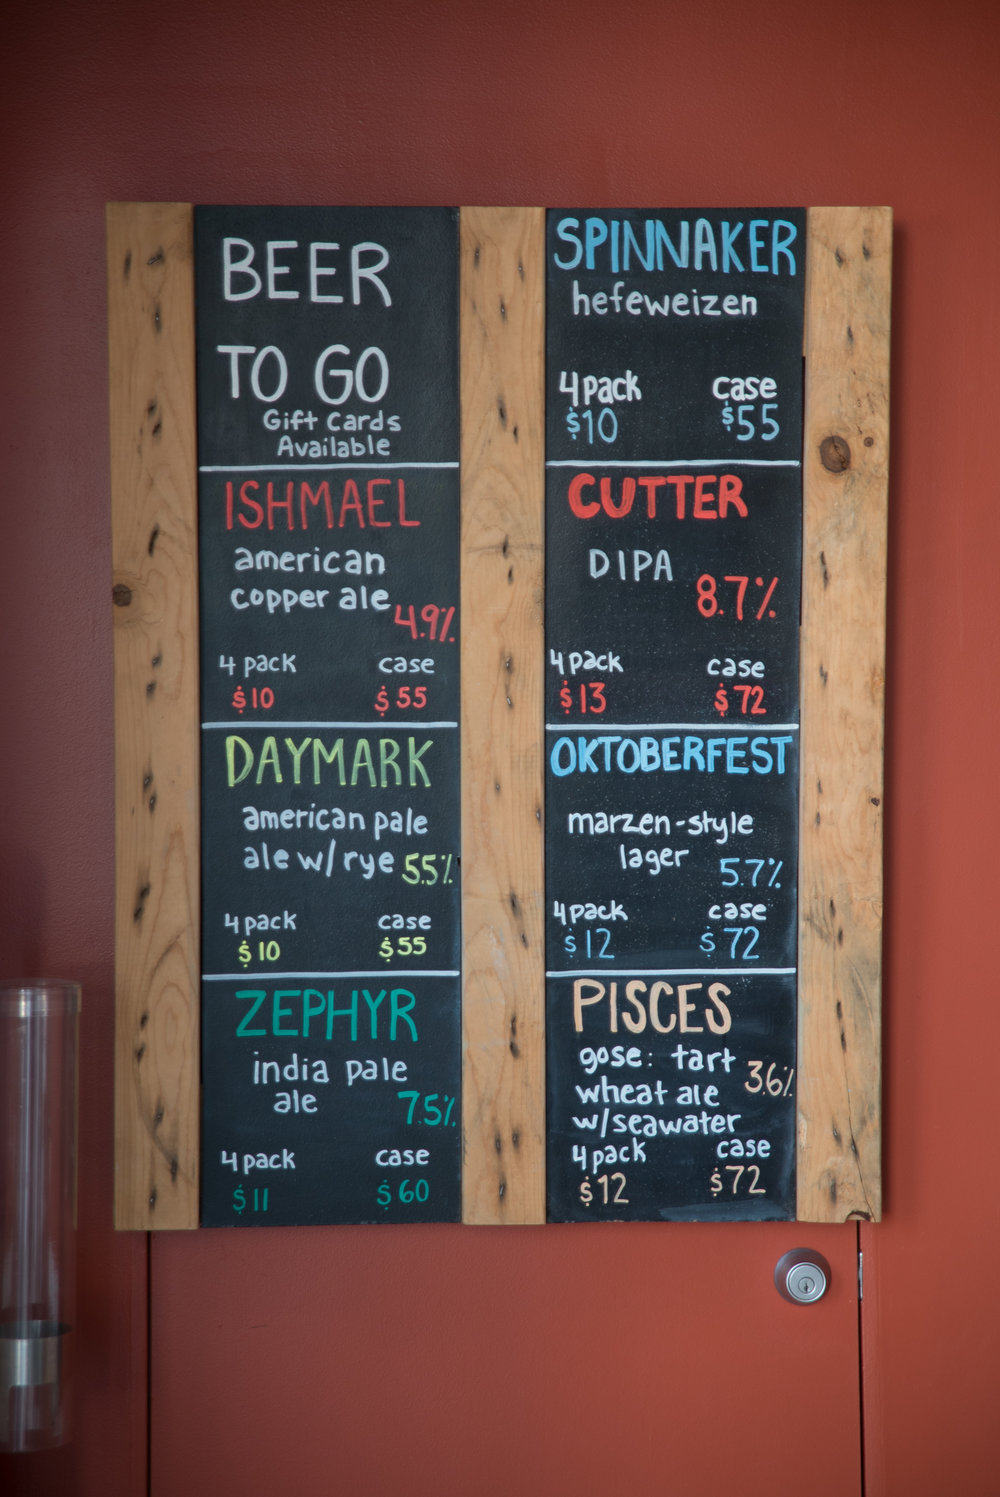 BEER
TO GO
Gift Cards
Available
ISHMAEL
american
copper ale
4.9%
4 pack case
$10 $55
DAYMARK
american pale
ale w/ rye
5.5%
4 pack case
$10 $55
ZEPHYR
india pale
ale
7.5%
4 pack case
$11 $60
SPINNAKER
hefeweizen
4 pack case
$10 $55
CUTTER
DIPA
8.7%
4 pack case
$13 $72
OKTOBERFEST
marzen-style
lager
5.7%
4 pack case
$12 $72
PISCES
gose: tart
wheat ale
3.6%
w/seawater
4 pack case
$12 $72